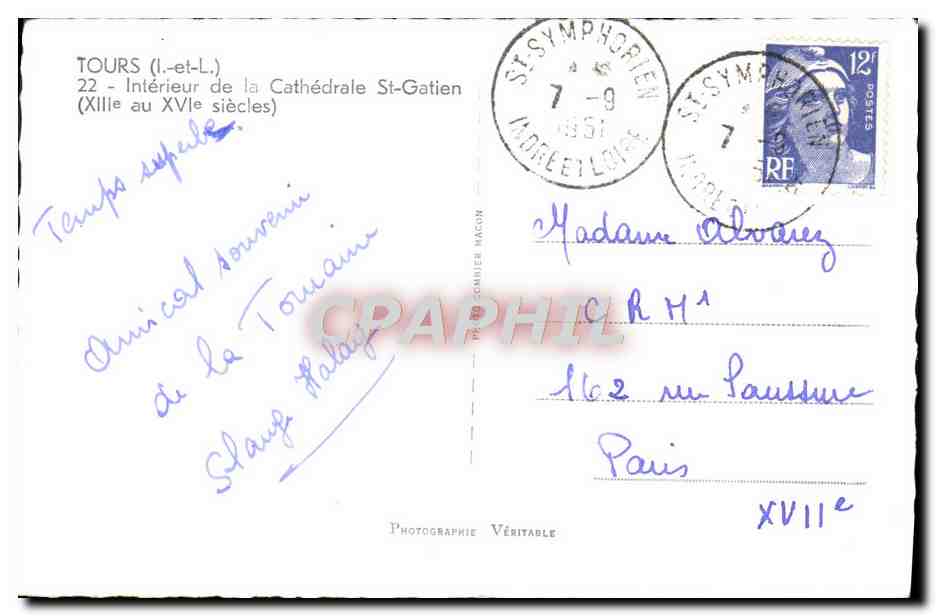 TOURS (I.-et-L.)
22 - Intérieur de la Cathédrale St-Gatien
(XIIIe au XVIe siècles)
Temps superbe.
Amical souvenir
de la Touraine
ST-SYMPHORIEN
7 -9
1951
INDRE ET LOIRE
ST-SYMPHORIEN
7
12F
POSTES
RF
PHOTO COMBIER MACON
CPAPHIL
Madame Alvarez
C R M 1
162 rue Saussure
Paris
XVIIe
PHOTOGRAPHIE VÉRITABLE